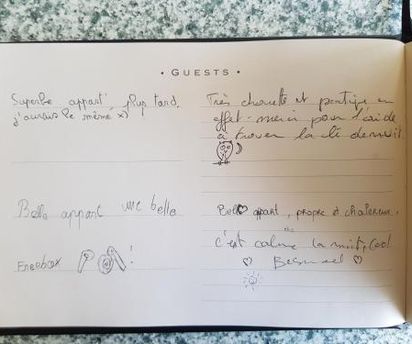 • GUESTS •
Superbe appart' plus tard
j'aurais le même x)
Très chouette et pratique en
effet - merci pour l'aide
à trouver la clé de nuit
Bello appart une belle
Freebox !
Bello appart, propre et chaleureux,
c'est calme la nuit, cool